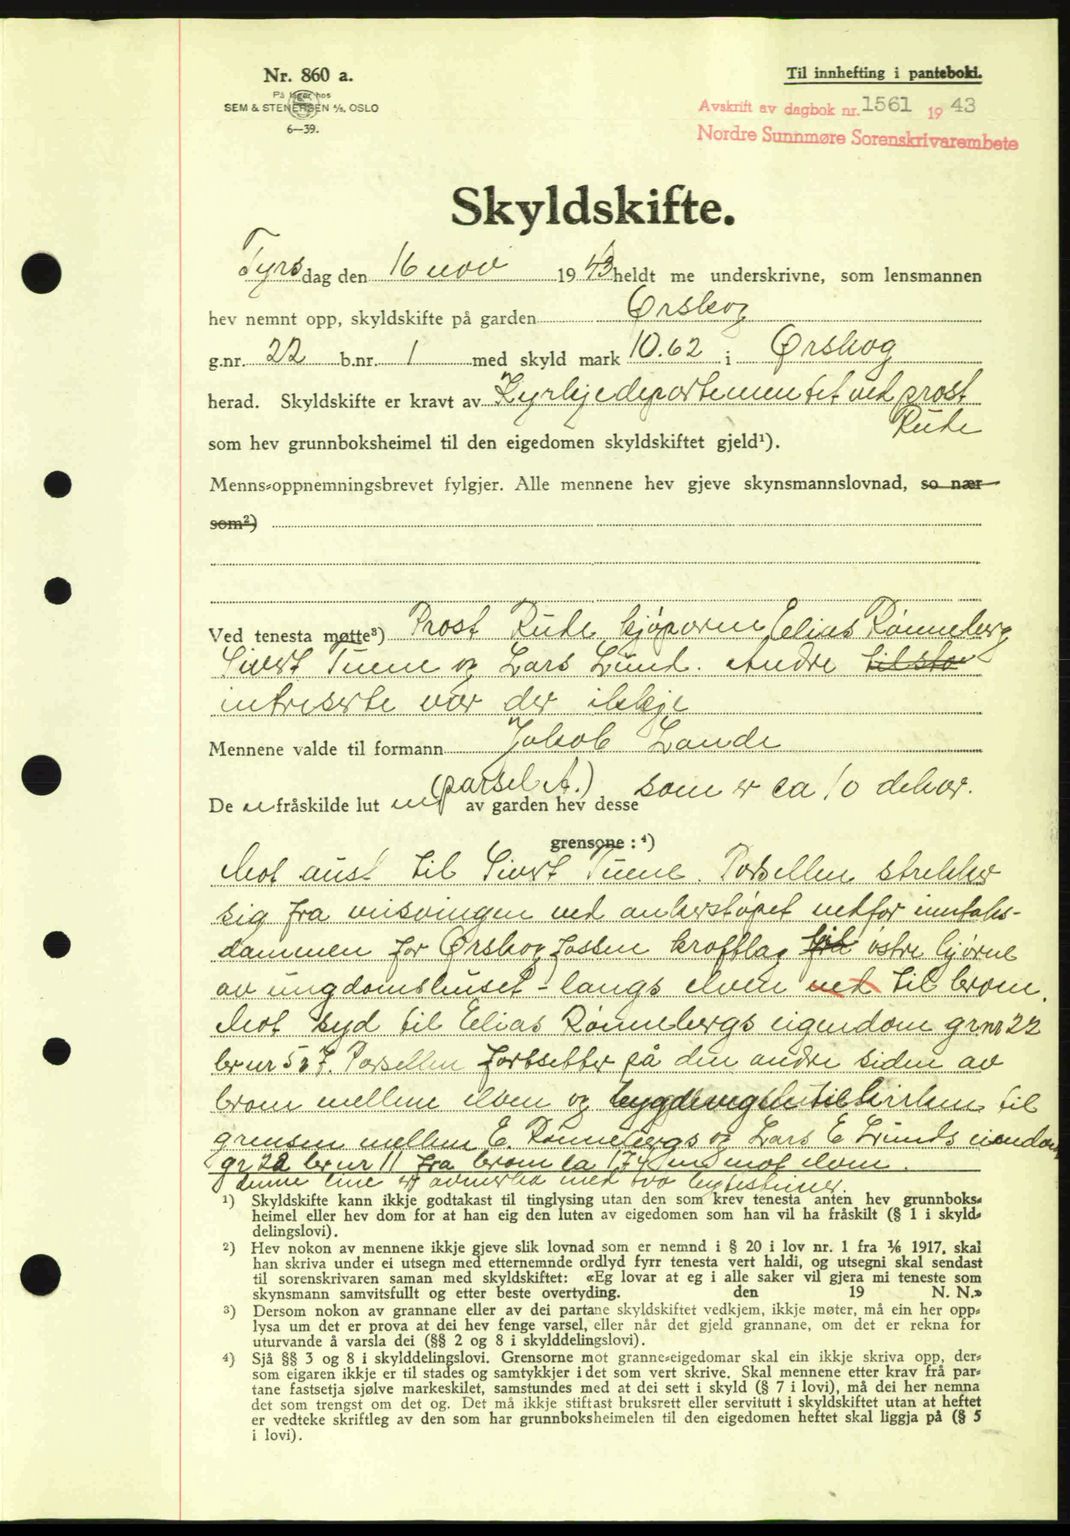 Nr. 860 a.
På lager hos
SEM & STENERSEN A/S, OSLO
6—39.
Til innhefting i panteboki.
Avskrift av dagbok nr. 1561 1943
Nordre Sunnmøre Sorenskrivarembete
Skyldskifte.
Tyrsdag den 16 nov 1943 heldt me underskrivne, som lensmannen
hev nemnt opp, skyldskifte på garden Ørskog
g.nr. 22 b.nr. 1 med skyld mark 10.62 i Ørskog
herad. Skyldskifte er kravt av Kyrkjedepartementet ved prost
Rude
som hev grunnboksheimel til den eigedomen skyldskiftet gjeld¹).
Menns-oppnemningsbrevet fylgjer. Alle mennene hev gjeve skynsmannslovnad, so nær
som²)
Ved tenesta møtte³) Prost Rude, kjøparne Elias Rønneberg
Sivert Tuene og Lars Lund. Andre tilsto
intreserte var der ikkje
Mennene valde til formann Jakob Lande
(parsel A.) som er ca 10 dekar.
De n fråskilde lut av garden hev desse
grensone : ⁴)
Mot aust til Sivert Tuene. Parsellen strekker
sig fra ved ankerstøpet nedfor inntaks-
dammen for Ørskog fossen kraftlag til østre hjørne
av ungdomshuset - langs elven ved til broen.
Mot syd til Elias Rønnebergs eigendom grnr 22
brnr 5 og 7. Parsellen fortsetter på den andre siden av
broen mellem elven og bygdevegen til kirken til
grensen mellem E. Rønnebergs og Lars E Lunds eiendom
gr 22 brnr 11 fra broen ca 174 m mot elven.
Denne line er avmerka med two bytesteiner.
¹) Skyldskifte kann ikkje godtakast til tinglysing utan den som krev tenesta anten hev grunnboks-
heimel eller hev dom for at han eig den luten av eigedomen som han vil ha fråskilt (§ 1 i skyld-
delingslovi).
²) Hev nokon av mennene ikkje gjeve slik lovnad som er nemnd i § 20 i lov nr. 1 fra 1/6 1917, skal
han skriva under ei utsegn med etternemnde ordlyd fyrr tenesta vert haldi, og utsegni skal sendast
til sorenskrivaren saman med skyldskiftet: «Eg lovar at eg i alle saker vil gjera mi teneste som
skynsmann samvitsfullt og etter beste overtyding. den 19 N. N.»
³) Dersom nokon av grannane eller av dei partane skyldskiftet vedkjem, ikkje møter, må ein her opp-
lysa um det er prova at dei hev fenge varsel, eller når det gjeld grannane, om det er rekna for
uturvande å varsla dei (§§ 2 og 8 i skylddelingslovi).
⁴) Sjå §§ 3 og 8 i skylddelingslovi. Grensorne mot granne-eigedomar skal ein ikkje skriva opp, der-
som eigaren ikkje er til stades og samtykkjer i det som vert skrive. Skal mennene etter krav frå par-
tane fastsetja sjølve markeskilet, samstundes med at dei sett i skyld (§ 7 i lovi), må dei her nemna
det som trengst om det og. Det må ikkje stiftast bruksrett eller servitutt i skyldskiftet utan at heftet
er vedteke skriftleg av den som har grunnboksheimelen til den eigedomen heftet skal liggja på (§ 5
i lovi).